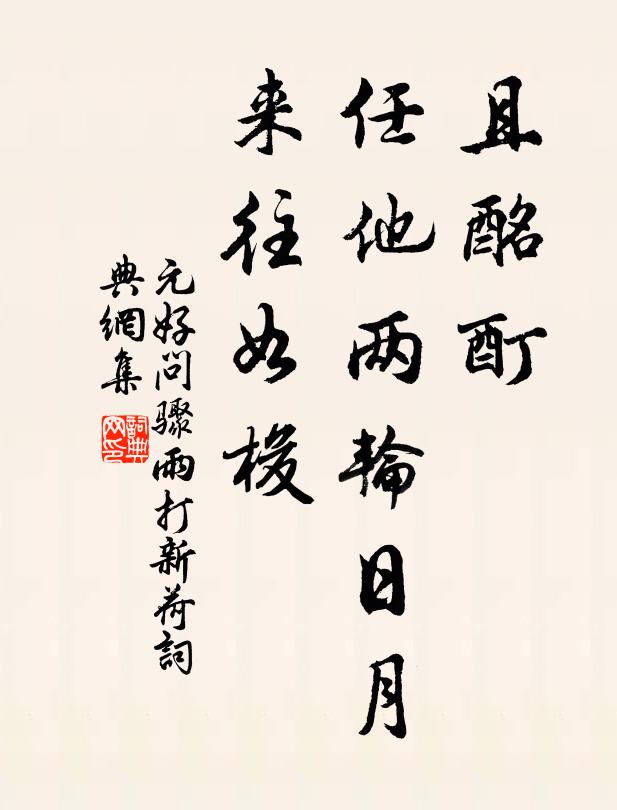 且酩酊
任他两輪日月
来往如梭
元好问骤雨打新荷詞
典網集
詞典网印